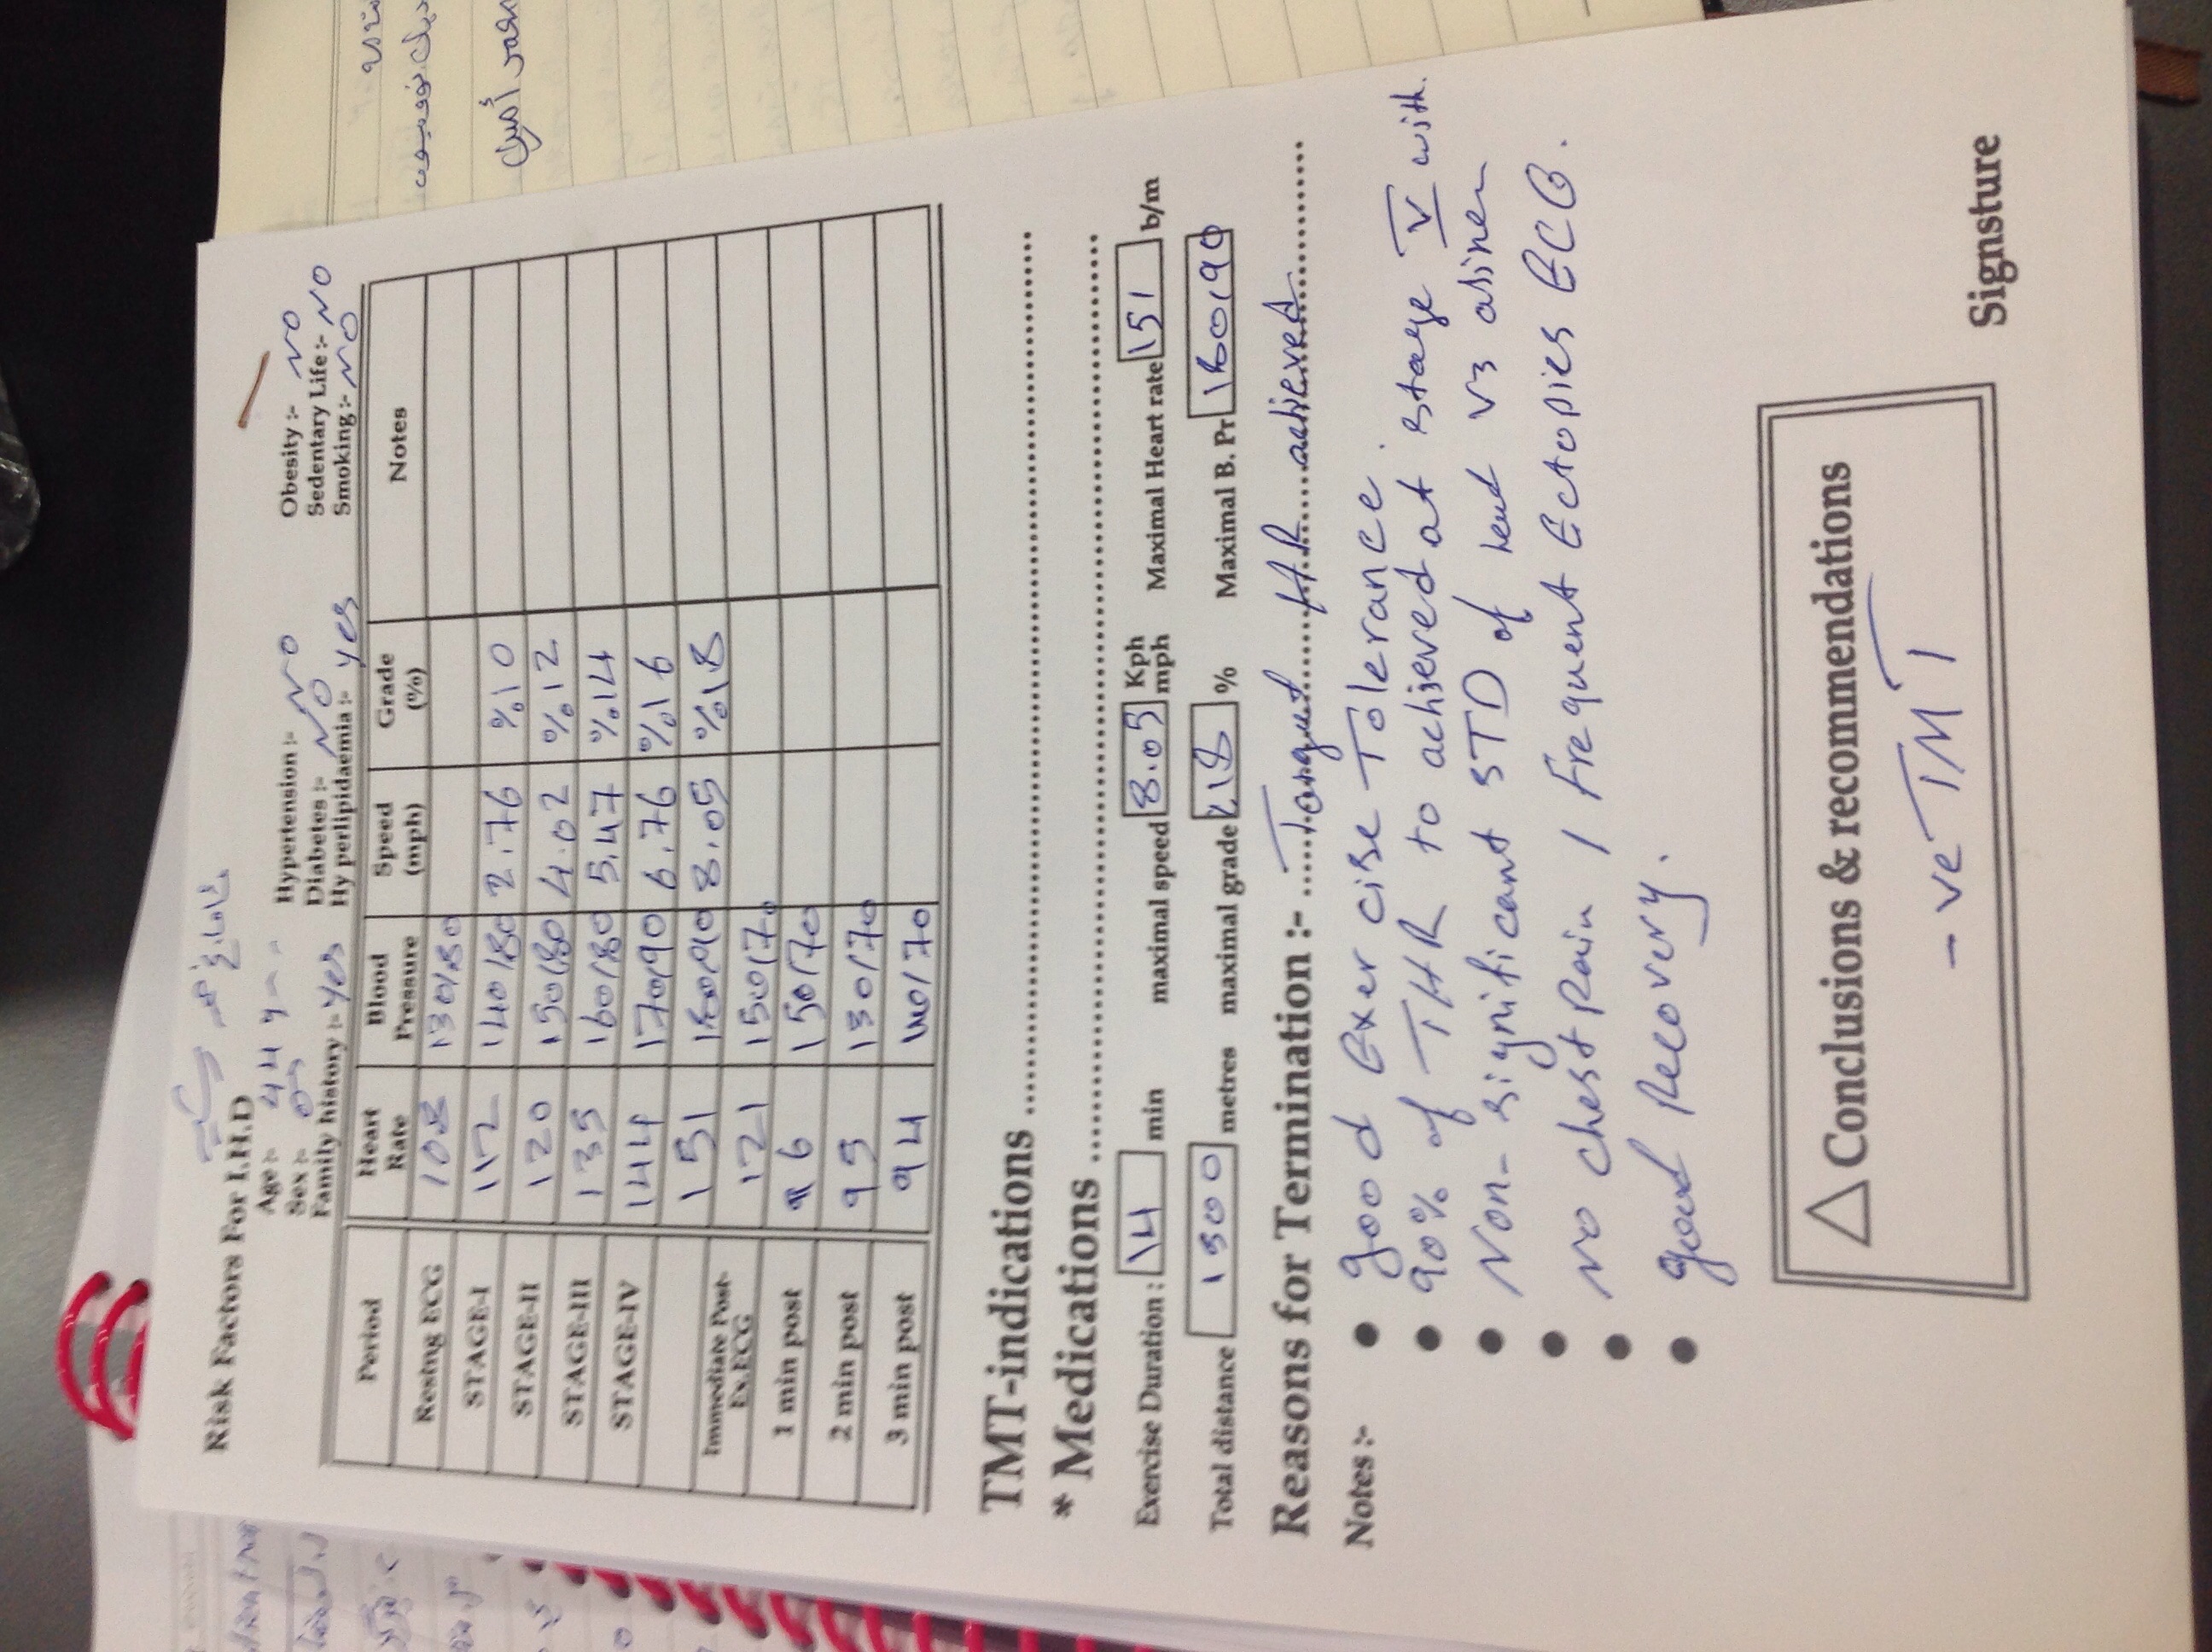 Risk Factors For I.H.D
Age :- 44 y
Sex :- ♂
Family history :- yes
Hypertension :- NO
Diabetes :- NO
Hy perlipidaemia :- yes
Obesity :- NO
Sedentary Life :- NO
Smoking :- NO
Period Heart Rate Blood Pressure Speed (mph) Grade (%) Notes
Restng ECG 108 130/80
STAGE-I 112 140/80 2.76 %10
STAGE-II 120 150/80 4.02 %12
STAGE-III 135 160/80 5.47 %14
STAGE-IV 144 170/90 6.76 %16
151 180/90 8.05 %18
Immediate Post-Ex.ECG 121 150/70
1 min post 96 150/70
2 min post 95 130/70
3 min post 94 140/70
TMT-indications
* Medications
Exercise Duration : 14 min maximal speed 8.05 Kph mph Maximal Heart rate 151 b/m
Total distance 1300 metres maximal grade %18 % Maximal B. Pr 180/90
Reasons for Termination :- Target HR achieved
Notes :-
• good Exercise Tolerance.
• 90% of THR to achieved at stage V with.
• Non-significant STD of lead V3
• No chest pain / Frequent Ectopies ECG.
•
• good Recovery.
Conclusions & recommendations
-ve TMT
Signsture